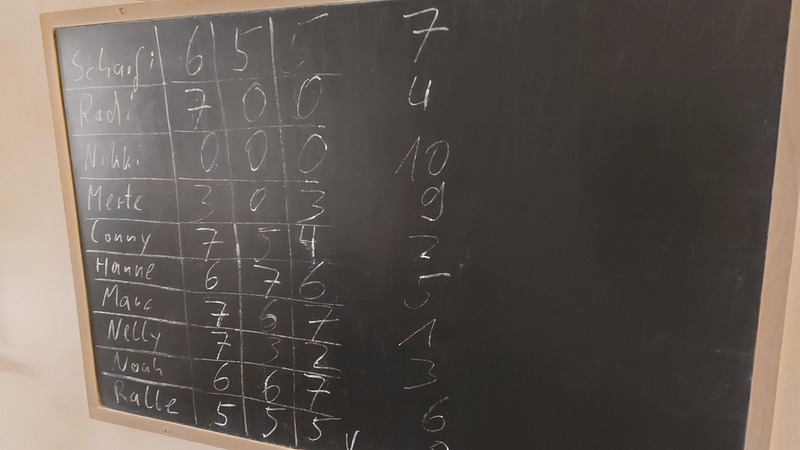 Scharfi 6 5 5 7
Radi 7 0 0 4
Nikki 0 0 0 10
Merte 3 0 3 9
Conny 7 5 4 2
Hanne 6 7 6 5
Marc 7 6 7 1
Nelly 7 3 2 3
Noah 6 6 7 6
Ralle 5 5 5